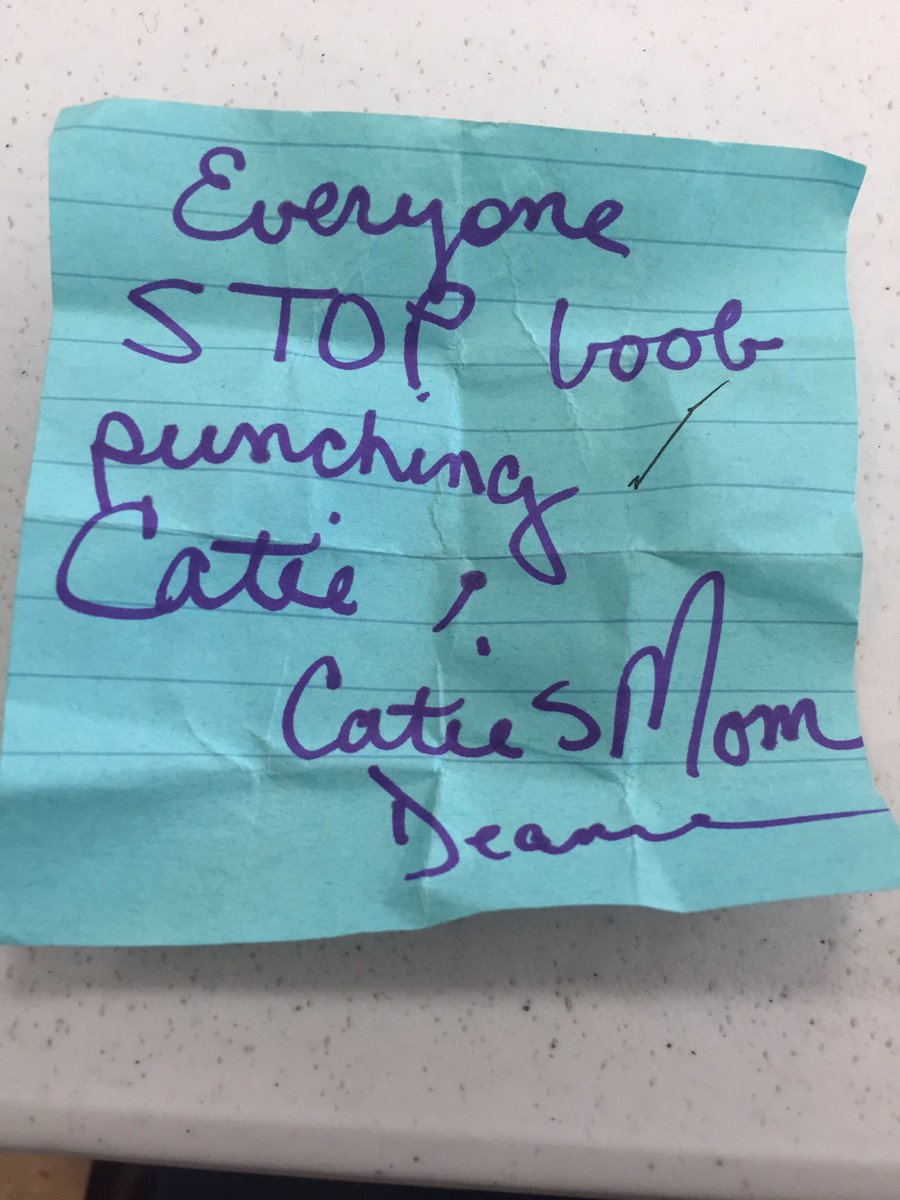 Everyone
STOP boob
punching
Catie!
Catie's Mom
Deanne